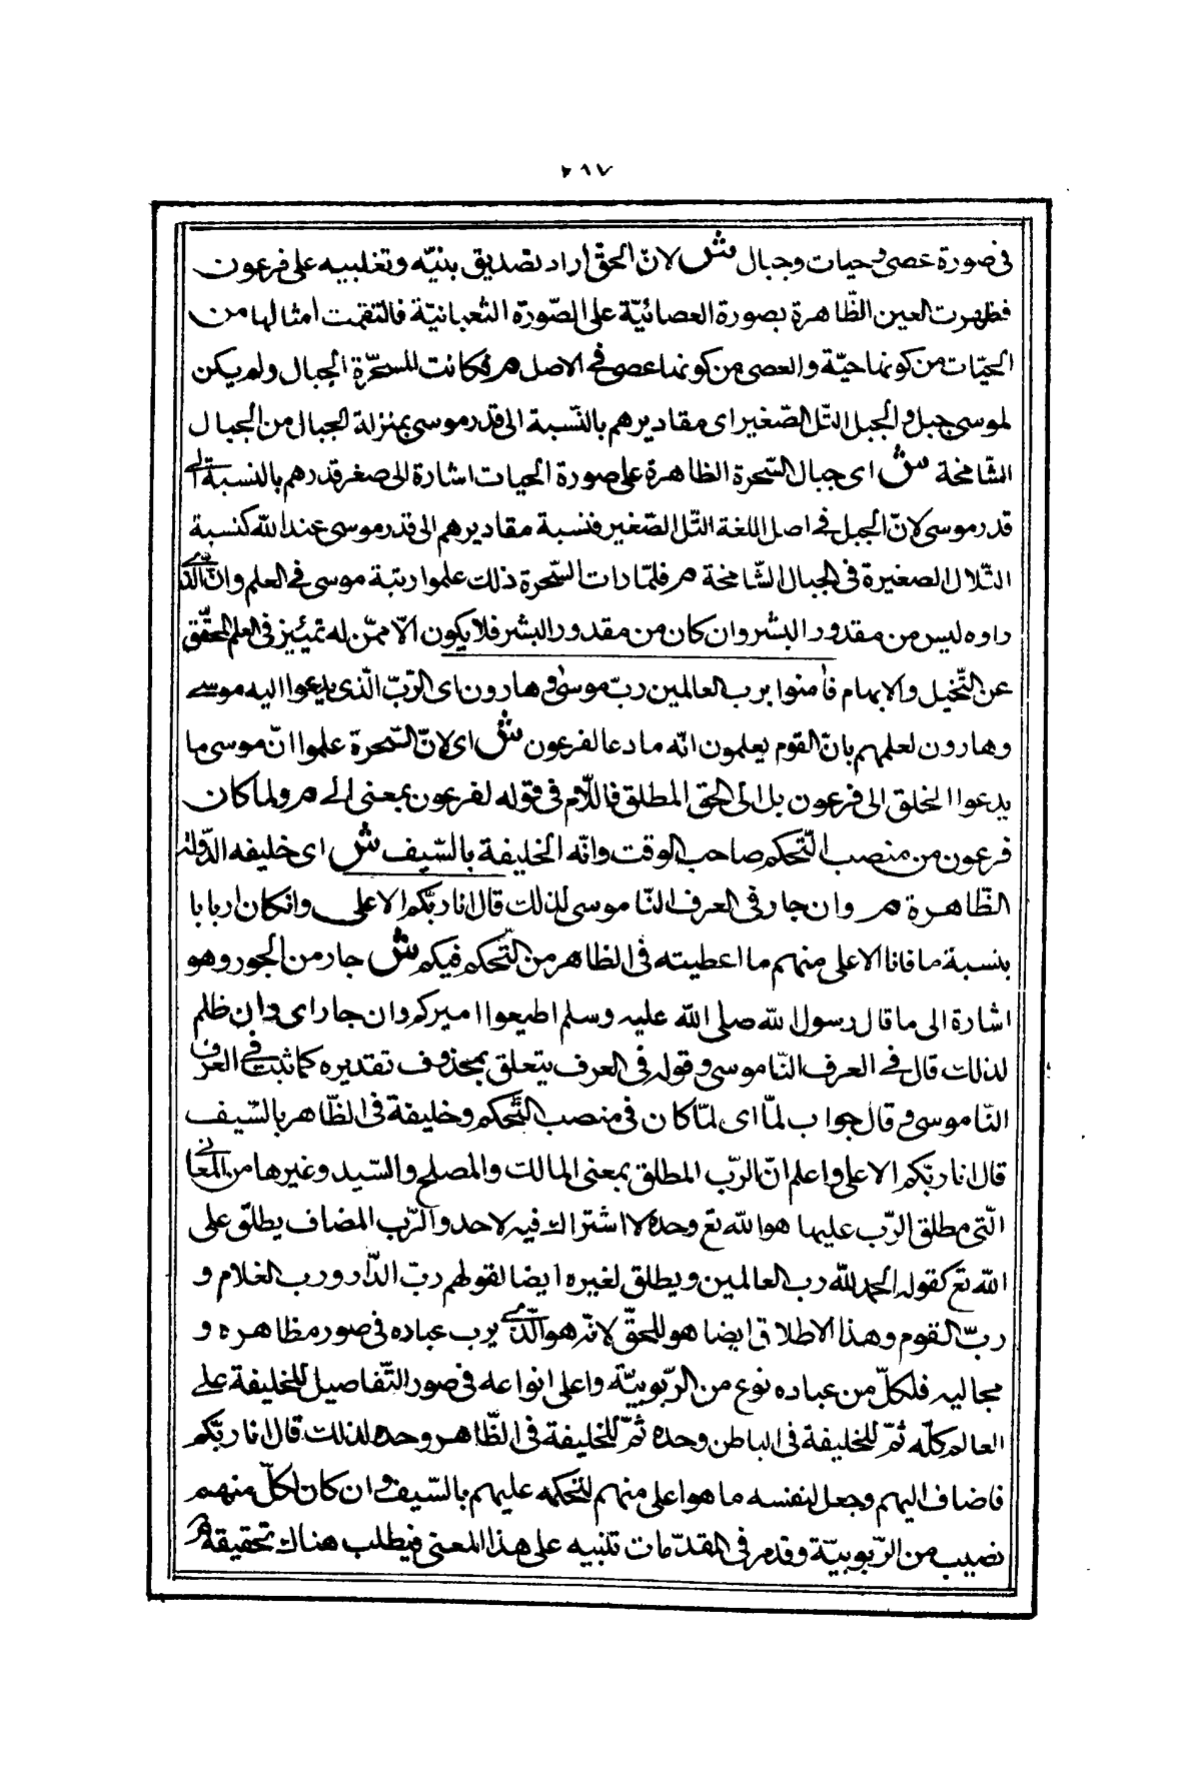 ٢٩٧
فى صورة عصى وحيات وجبال ش لانّ الحقّ اراد تصديق بنيّه وتغليبيه على فرعون
فظهرت العين الظّاهرة بصورة العصائيّة على الصّورة الثعبانيّة فالتقمت امثالها من
الحيّات من كونها حيّة والعصى من كونها عصى فى الاصل م فكانت للسحرّة الحبال ولم يكن
لموسى حبل والحبل التّل الصّغير اى مقاديرهم بالنّسبة الى قدر موسى بمنزلة الحبال من الجبال
الشّامخة ش اى حبال السّحرة الظاهرة على صورة الحيات اشارة الى صغر قدرهم بالنسبة الى
قدر موسى لانّ الحبل فى اصل اللغة التّل الصّغير فنسبة مقاديرهم الى قدر موسى عند الله كنسبة
التّلال الصغيرة فى الجبال الشّامخة م فلمّا رات السّحرة ذلك علموا رتبة موسى فى العلم وان الذى
راوه ليس من مقدور البشر وان كان من مقدور البشر فلا يكون الّا ممّن له تميّيز فى العلم المحقّق
عن التّخيل والايهام فآمنوا برب العالمين ربّ موسى وهارون اى الرّبّ الّذى يدعوا اليه موسى
وهارون لعلمهم بانّ القوم يعلمون انّه ما دعا لفرعون ش اى لانّ السّحرة علموا انّ موسى ما
يدعوا الخلق الى فرعون بل الى الحق المطلق فاللّام فى قوله لفرعون بمعنى الى م ولما كان
فرعون من منصب التّحكم صاحب الوقت وانّه الخليفة بالسّيف ش اى خليفه الدّولة
الظّاهرة م وان جار فى العرف النّاموسى لذلك قال انا ربّكم الاعلى وان كان اربابا
بنسبة ما فانا الاعلى منهم ما اعطيته فى الظاهر من التّحكم فيكم ش جار من الجور وهو
اشارة الى ما قال رسول لله صلى الله عليه وسلم اطيعوا اميركم وان جار اى وان ظلم
لذلك قال فى العرف النّاموسى وقوله فى العرف يتعلق بمحذوف تقديره كما ثبت فى العرف
النّاموسى وقال جواب لمّا اى لمّا كان فى منصب التّحكم وخليفة فى الظّاهر بالسّيف
قال انا ربّكم الاعلى واعلم انّ الرّب المطلق بمعنى المالك والمصلح والسّيد وغيرها من المعانى
الّتى مطلق الرّب عليها هو الله تع وحده لا اشتراك فيه لاحد والرّب المضاف يطلق على
الله تع كقوله الحمد لله رب العالمين ويطلق لغيره ايضا لقولهم ربّ الدّار ورب الغلام و
ربّ القوم وهذا الاطلاق ايضا هو للحقّ لانّه هو الّذى يرب عباده فى صور مظاهره و
مجاليه فلكلّ من عباده نوع من الرّبوبيّة واعلى انواعه فى صور التّفاصيل للخليفة على
العالم كلّه ثمّ للخليفة فى الباطن وحده ثمّ للخليفة فى الظّاهر وحده لذلك قال انا ربّكم
فاضاف اليهم وجعل لنفسه ما هو اعلى منهم لتحكمه عليهم بالسّيف وان كان لكلّ منهم
نصيب من الرّبوبيّة وقد مر فى المقدّمات تنبيه على هذا المعنى فيطلب هناك تحقيقة م